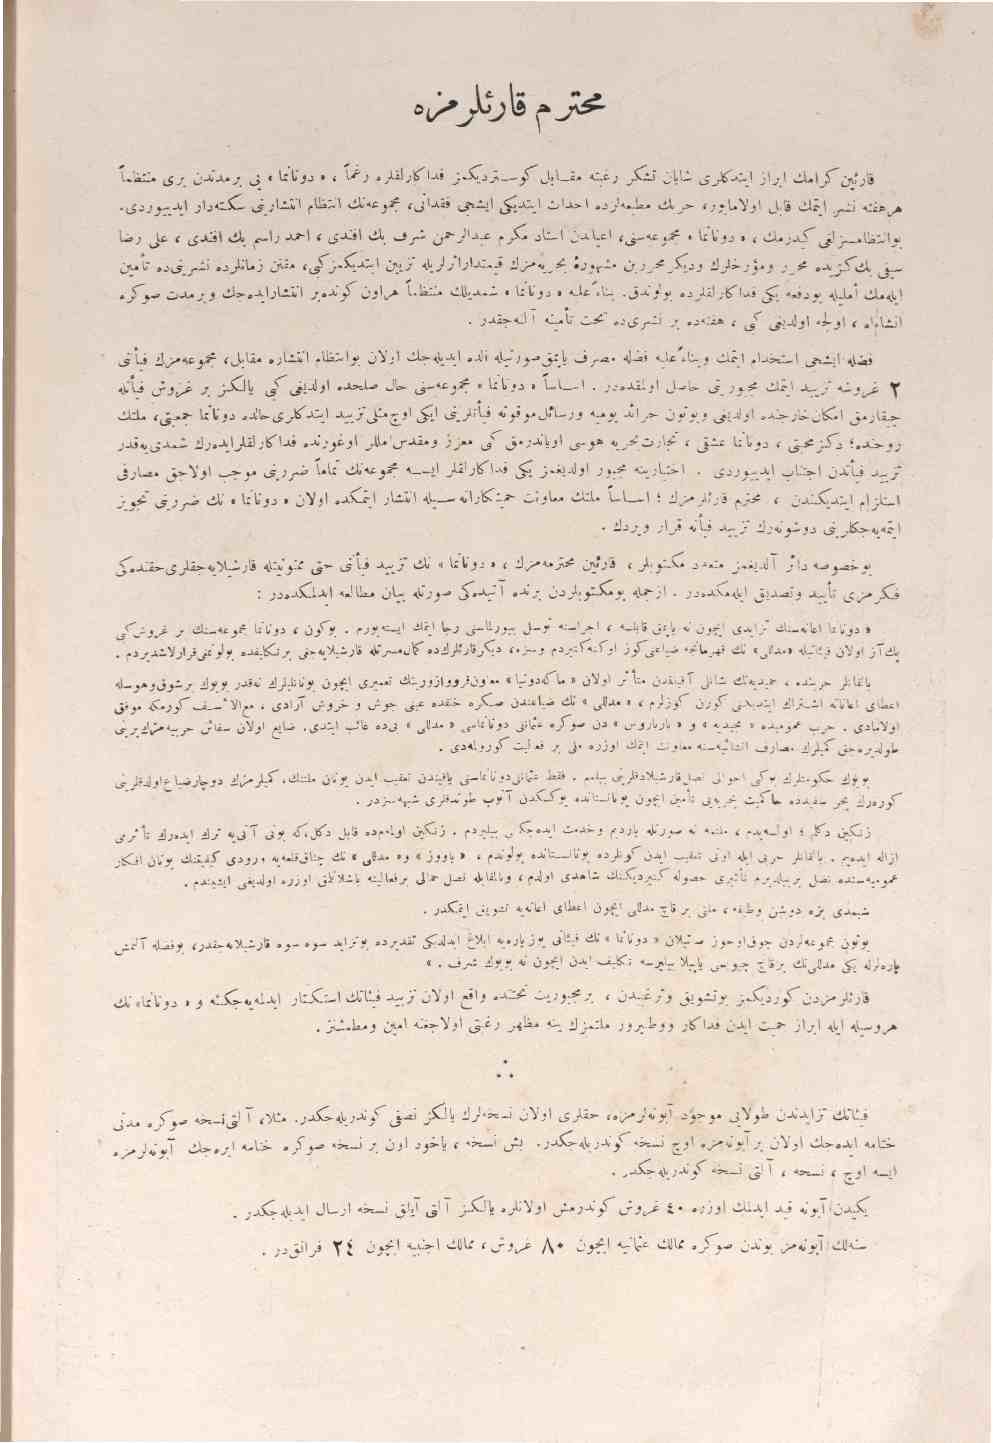 محترم قارئلرمزه
قارئین كرامك ابراز ایتدكلری شایان تشكر رغبته مقـابل كوسـتردیكمز فداكارلقلره رغماً ، « دونانما » یی برمدتدن بری منتظماً
هرهفته نشر ایتمك قابل اولامایور، حربك مطبعه‌لرده احداث ایتدیكی ایشجی فقدانی، مجموعه‌نك انتظام انتشارینی سكته‌دار ایدییوردی.
بوانتظامسزلغی كیدرمك ، « دونانما » مجموعه‌سنی، اعیاندن استاد مكرم عبدالرحمن شرف بك افندی ، احمد راسم بك افندی ، علی رضا
سیفی بك‌كزیده محرر ومؤرخلرك ودیكر محررین مشهورهٔ بحریه‌مزك قیمتدارائرلریله تزیین ایتدیكمزكبی، معین زمانلرده نشرینی‌ده تأمین
ایله‌مك أملیله بودفعه یكی فداكارلقلرده بولوندق. بناءً علیه « دونانما » شمدیلك منتظماً هراون كونده‌بر انتشارایده‌جك وبرمدت صوكره
انشاءالله ، اولجه اولدیغی كبی ، هفته‌ده بر نشری‌ده تحت تأمینه آلنه‌جقدر .
فضله ایشجی استخدام ایتمك وبناءً علیه فضله مصرف یاپمق‌صورتیله الده ایدیله‌جك اولان بوانتظام انتشاره مقابل، مجموعه‌مزك فیأتنی
۲ غروشه تزیید ایتمك مجبوریتی حاصل اولمقده‌در . اساساً « دونانما » مجموعه‌سنی حال صلحده اولدیغی كبی یالكز بر غروش فیأتله
چیقارمق امكان‌خارجنده اولدیغی وبوتون جرائد یومیه ورسائل‌موقوته فیأتلرینی ایكی اوچ‌مثلی‌تزیید ایتدكلری‌حالده دونانما جمعیتی، ملتك
روحنده؛ دكزمحبتی ، دونانما عشقی ، تجارت‌بحریه هوسی اویاندرمق كبی معزز ومقدس‌املر اوغورنده فداكارلقلرایده‌رك شمدی‌یه‌قدر
تزیید فیأتدن اجتناب ایدییوردی . اختیارینه مجبور اولدیغمز یكی فداكارلقلر ایسه مجموعه‌نك تماماً ضررینی موجب اولاجق مصارفی
استلزام ایتدیكندن ، محترم قارئلرمزك ؛ اسـاساً ملتك معاونت حمیتكارانه سـیله انتشار ایتمكده اولان « دونانما » نك ضررینی تجویز
ایتمیه‌جكلرینی دوشونه‌رك تزیید فیأته قرار ویردك .
بوخصوصه دائر آلدیغمز متعدد مكتوبلر ، قارئین محترمه‌مزك ، « دونانما » نك تزیید فیأتنی حتی ممنونیتله قارشیلایه‌جقلری‌حقنده‌كی
فكرمزی تأیید وتصدیق ایله‌مكده‌در . ازجمله بومكتوبلردن برنده آتیده‌كی صورتله بیان مطالعه ایدلمكده‌در :
« دونانما اعانه‌سنك تزایدی ایچون نه یاپمق قابلسه ، اجراسنه توسل بیورلماسنی رجا ایتمك ایسته‌یورم . بوكون ، دونانما مجموعه‌سنك بر غروش‌كبی
پك‌آز اولان فیئاتیله «مدللی» نك قهرمانجه ضیاعنی‌كوز اوكنه‌كتیردم وسزه، دیكرقارئلرك‌ده كمال‌مسرتله قارشیلایه‌جغی برتكلیفده بولونمغی‌قرارلاشدیردم .
بالقانلر حربنده ، حمیدیه‌نك شانلی آقینندن متأثر اولان « ماكه‌دونیا » معاون‌قرووازورینك تعمیری ایچون یونانلیلرك نه‌قدر بویوك برشوق‌وهوسله
اعطای اعاناته اشتراك ایتدیكنی كورن كوزلرم ، « مدللی » نك ضیاعندن صكره خلقده عینی جوش و خروش آرادی ، مع‌الاسـف كورمكه موفق
اولامادی . حرب عمومیده « مجیدیه » و « بارباروس » دن صوكره عثمانلی دونانماسی « مدللی » یی‌ده غائب ایتدی. ضایع اولان سفائن حربیه‌مزك‌یرینی
طولدیره‌جق كمیلرك مصارف انشائیه‌سنه معاونت ایتمك اوزره ملی بر فعالیت كوروله‌مدی .
بویوك حكومتلرك بوكبی احوالی نصل‌قارشیلادقلرینی بیلمم . فقط عثمانلی‌دونانماسنی یاقیندن تعقیب ایدن یونان ملتنك، كمیلرمزك دوچارضیاع‌اولدقلرینی
كوره‌رك بحر سفیدده حاكمیت بحریه‌یی تأمین ایچون یونانستانده یوكسكدن آتوب طوتدقلری شبهه‌سزدر .
زنكین دكلم ؛ اولسه‌یدم ، ملتمه نه صورتله یاردیم وخدمت ایده‌جكمی بیلیردم . زنكین اولمه‌مده قابل دكل،كه بونی آتی‌یه ترك ایده‌رك تأثرمی
ازاله ایده‌یم . بالقانلر حربی ایله اونی تعقیب ایدن كونلرده یونانستانده بولوندم ، « یاووز » و« مدللی » نك چناق‌قلعه‌یه ورودی كیفیتنك یونان افكار
عمومیه‌سنده نصل بربیلدیرم تأثیری حصوله كتیردیكنك شاهدی اولدم ، وبالمقابله نصل حمالی برفعالیته باشلانلمق اوزره اولدیغی ایشیتدم .
شیمدی بزه دوشن وظیفه ، ملی بر قاچ مدللی ایچون اعطای اعانه‌یه تشویق ایتمكدر .
بوتون مجموعه‌لردن چوق‌اوجوز صاتیلان « دونانما » نك فیئاتی یوز پاره‌یه ابلاغ ایدلدیكی تقدیرده بوتزاید سوه سوه قارشیلانه‌جقدر، بوفضله آلنمش
پاره‌لرله یكی مدللی‌نك برقاچ چیویسی یاپیلا بیلیرسه تكلیف ایدن ایچون نه بویوك شرف . »
قارئلرمزدن كوردیكمز بوتشویق وترغیبدن ، برمجبوریت تحتنده واقع اولان تزیید فیئاتك استكثار ایدلمه‌یه‌جكنه و « دونانما» نك
هروسیله ایله ابراز حمیت ایدن فداكار ووطنپرور ملتمزك ینه مظهر رغبتی اولاجغنه امین ومطمئنز .
∴
فیئاتك تزایدندن طولایی موجود آبونه‌لرمزه، حقلری اولان نسخه‌لرك یالكز نصفی كوندریله‌جكدر. مثلا، آلتی‌نسخه صوكره مدتی
ختامه ایده‌جك اولان بر آبونه‌مزه اوچ نسخه كوندریله‌جكدر. بش نسخه ، یاخود اون بر نسخه صوكره ختامه ایره‌جك آبونه‌لرمزه
ایسه اوچ ، نسخه ، آلتی نسخه كوندریله‌جكدر .
یكیدن آبونه قید ایدنك اوزره ٤٠ غروش كوندرمش اولانلره یالكز آلتی آیلق نسخه ارسال ایدیله‌جكدر .
سنه‌لك آبونه‌مز بوندن صوكره ممالك عثمانیه ایچون ٨٠ غروش ، ممالك اجنبیه ایچون ٢٤ فرانق‌در .